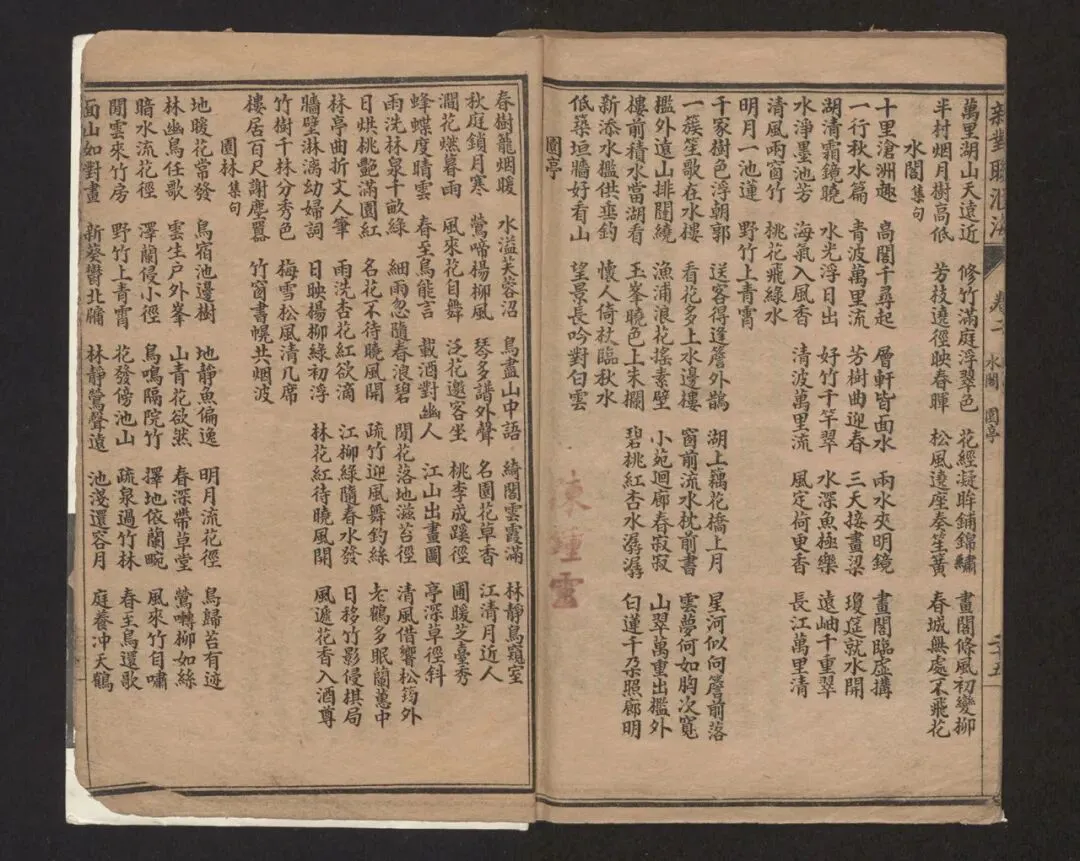 新對聯 卷二 水閣 園亭 二十五
萬里湖山天遠近 修竹滿庭浮翠色 花經凝眸鋪錦繡 畫閣條風初變柳
半村烟月樹高低 芳枝遶徑映春暉 松風遶座奏笙簧 春城無處不飛花
水閣集句
十里滄洲趣 高閣千尋起 層軒皆面水 兩水夾明鏡 畫閣臨虛搆
一行秋水篇 青波萬里流 芳樹曲迎春 三天接畫梁 瓊筵就水開
湖清霜鏡曉 水光浮日出 好竹千竿翠 水深魚極樂 遠岫千重翠
水淨墨池芳 海氣入風香 清波萬里流 風定荷更香 長江萬里清
清風兩窗竹 桃花飛綠水
明月一池蓮 野竹上青霄
千家樹色浮朝郭 送客得逢簷外鵲 湖上藕花橋上月 星河似向簷前落
一簇笙歌在水樓 看花多上水邊樓 窗前流水枕前書 雲夢何如胸次寬
檻外遠山排闥繞 漁浦浪花搖素壁 小苑迴廊春寂寂 山翠萬重出檻外
樓前積水當湖看 玉峯曉色上朱欄 碧桃紅杏水潺潺 白蓮千朶照廊明
新添水檻供垂釣 懷人倚杖臨秋水
低築垣牆好看山 望景長吟對白雲
陳鍾靈
園亭
春樹籠烟暖 水溢芙蓉沼 鳥盡山中語 綺閣雲霞滿 林靜鳥窺室
秋庭鎖月寒 鶯啼楊柳風 琴多譜外聲 名園花草香 江清月近人
澗花燃暮雨 風來花自舞 泛花邀客坐 桃李成蹊徑 圃暖芝臺秀
蜂蝶度晴雲 春至鳥能言 載酒對幽人 江山出畫圖 亭深草徑斜
雨洗林泉千畝綠 細雨忽隨春浪碧 閒花落地滋苔徑 清風借響松筠外
日烘桃艷滿園紅 名花不待曉風開 疏竹迎風舞釣絲 老鶴多眠蘭蕙中
林亭曲折文人筆 雨洗古花紅欲滴 江柳綠隨春水發 日移竹影侵棋局
牆壁淋漓幼婦詞 日映楊柳綠初浮 林花紅待曉風開 風遞花香入酒尊
竹樹千林分秀色 梅雪松風清几席
樓居百尺謝塵囂 竹窗書幌共烟波
園林集句
地暖花常發 鳥宿池邊樹 地靜魚偏逸 明月流花徑 鳥歸苔有迹
林幽鳥任歌 雲生户外峯 山青花欲然 春深帶草堂 鶯囀柳如絲
暗水流花徑 澤蘭侵小徑 鳥鳴隔院竹 擇地依蘭畹 風來竹自嘯
閒雲來竹房 野竹上青霄 花發傍池山 疏泉過竹林 春至鳥還歌
面山如對畫 新葵鬱北牖 林靜鶯聲遠 池淺還容月 庭養冲天鶴